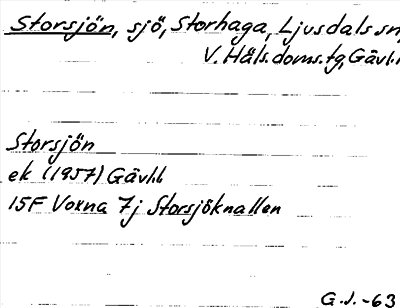 Storsjön, sjö, Storhaga, Ljusdals sn,
V. Häls. doms. tg, Gävl.l
Storsjön
ek (1957) Gävl.l
15F Voxna 7j Storsjöknallen
G.J.-63